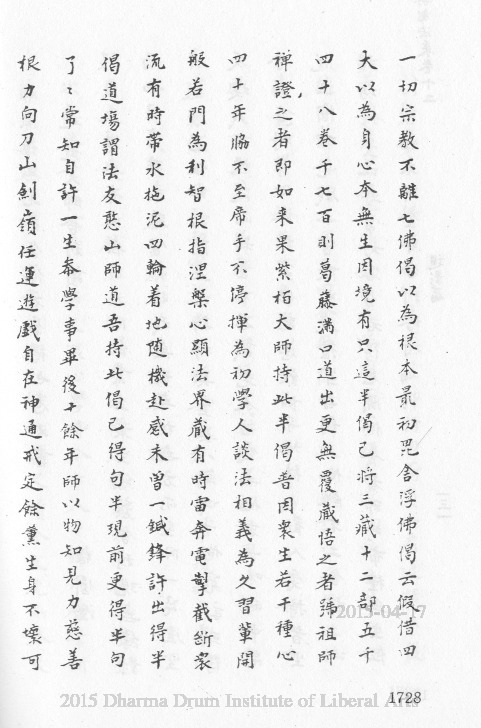 一切宗教不離七佛偈以為根本最初毘舍浮佛偈云假借四
大以為身心本無生因境有只這半偈已將三藏十二部五千
四十八卷千七百則葛藤滿口道出更無覆藏悟之者號祖師
禪證之者即如來果紫栢大師持此半偈普因衆生若干種心
四十年脇不至席手不停揮為初學人談法相義為久習輩開
般若門為利智根指涅槃心顯法界藏有時雷奔電掣截斷衆
流有時帶水拖泥四輪着地随機赴感未曾一鍼鋒許出得半
偈道場謂法友憨山師道吾持此偈已得句半現前更得半句
了了常知自許一生叅學事畢後十餘年師以物知見力慈善
根力向刀山劍嶺任運遊戲自在神通戒定餘薰生身不壞可
1728
2015-04-17
2015 Dharma Drum Institute of Liberal Arts